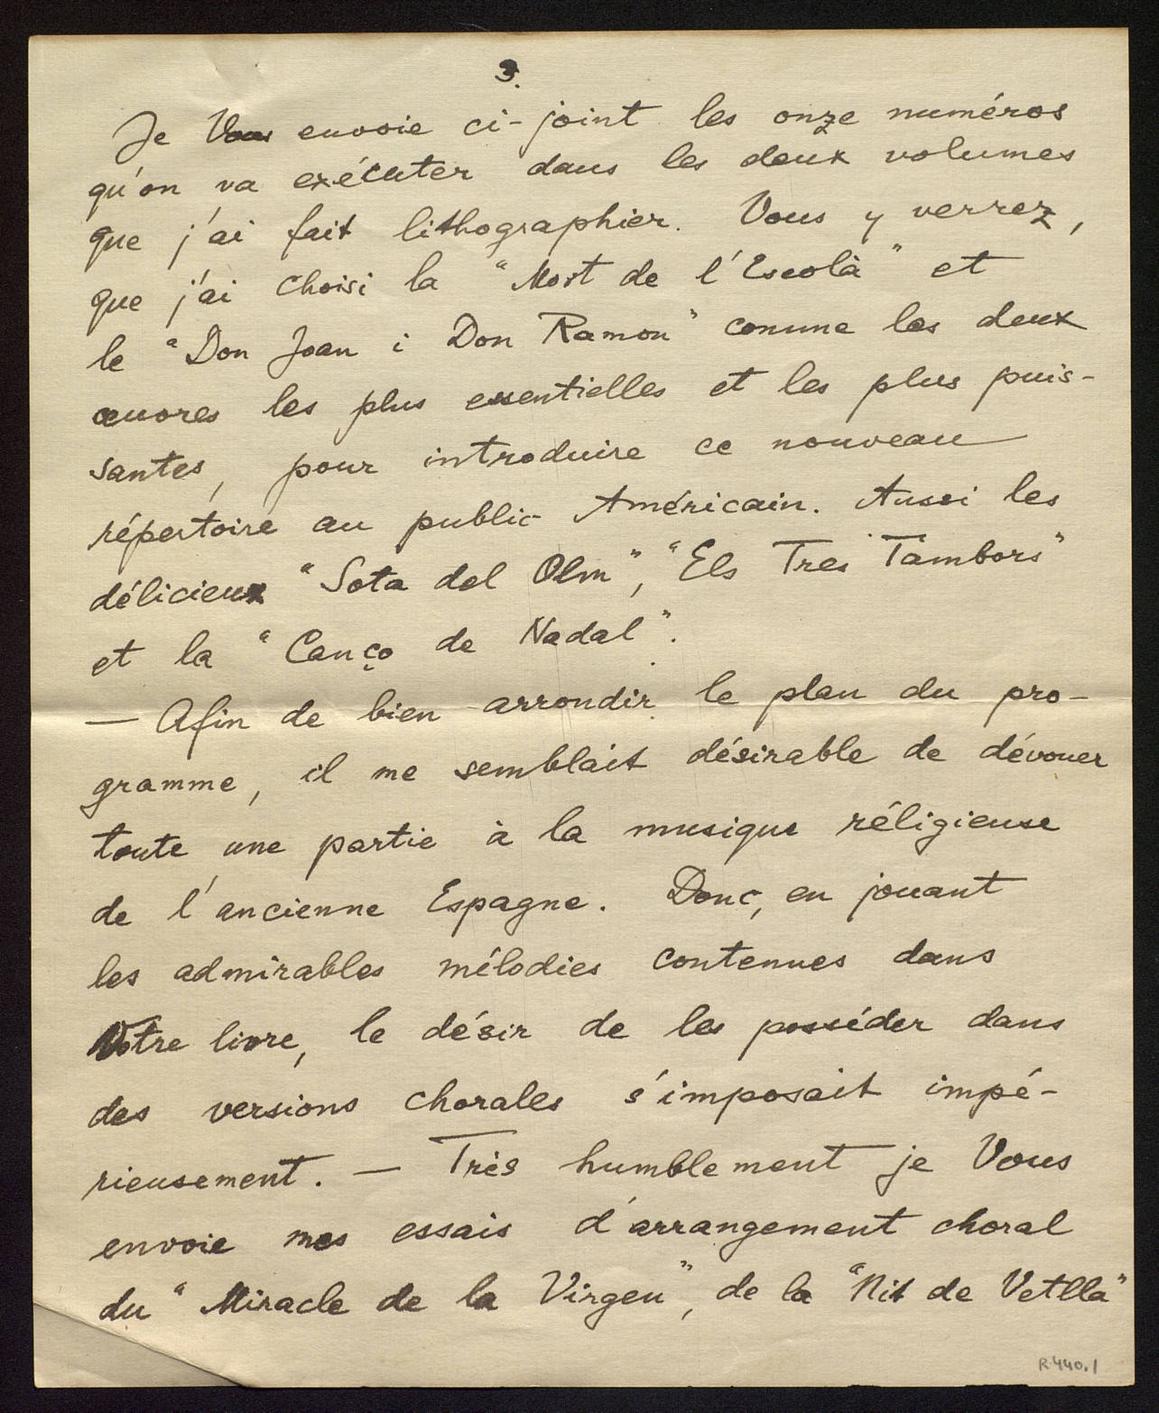 3.
Je Vous envoie ci-joint les onze numéros
qu'on va exécuter dans les deux volumes
que j'ai fait lithographier. Vous y verrez,
que j'ai choisi la "Mort de l'Escolà" et
le "Don Joan i Don Ramon" comme les deux
œuvres les plus essentielles et les plus puis-
santes, pour introduire ce nouveau
répertoire au public Américain. Aussi les
délicieux "Sota del Olm", "Els Tres Tambors"
et la "Canço de Nadal".
— Afin de bien arrondir le plan du pro-
gramme, il me semblait désirable de dévouer
toute une partie à la musique réligieuse
de l'ancienne Espagne. Donc, en jouant
les admirables mélodies contenues dans
Votre livre, le désir de les posséder dans
des versions chorales s'imposait impé-
rieusement. — Très humblement je Vous
envoie mes essais d'arrangement choral
du "Miracle de la Virgen", de la "Nit de Vetlla"
R.440.1